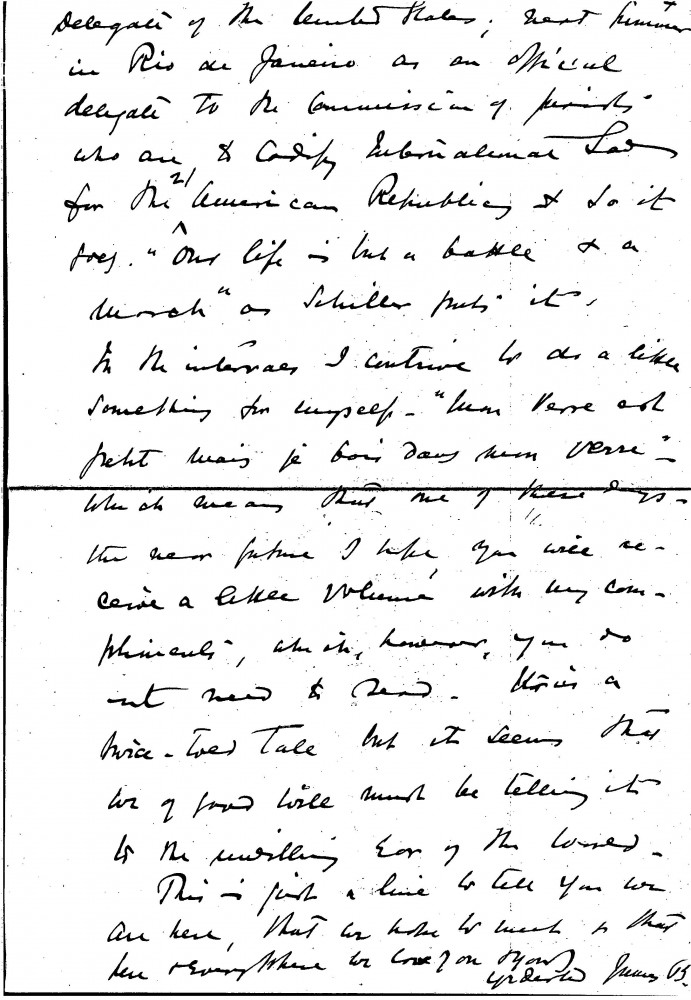 Delegate of the United States; next summer
in Rio de Janeiro as an official
delegate to the Commission of jurists
who are to codify International Law
for the 21 American Republics & so it
goes. "Our life is but a battle & a
march" as Schiller puts it.
In the intervals I contrive to do a little
something for myself - "Mon verre est
petit mais je bois dans mon verre" -
which means that one of these days -
the near future I hope, you will re-
ceive a little volume with my com-
pliments, which, however, you do
not need to read. It is a
twice-told Tale but it seems that
we of good will must be telling it
to the unwilling Ear of the World -
This is just a line to tell you we
are here, that we
here & Everywhere we love you
James